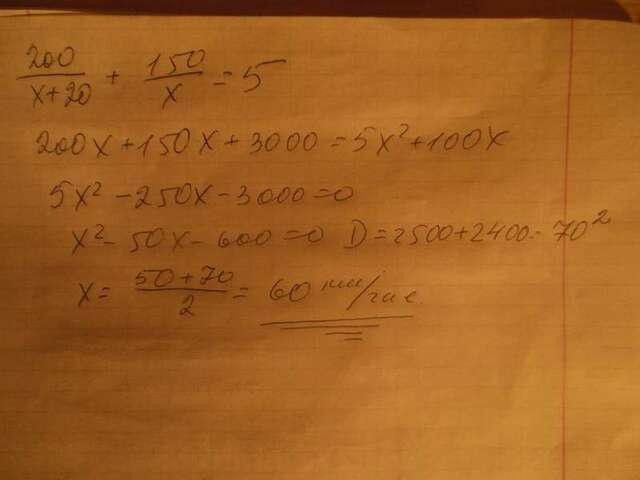 200/(x+20) + 150/x = 5
200x+150x+3000=5x²+100x
5x²-250x-3000=0
x²-50x-600=0 D=2500+2400=70²
x= (50+70)/2 = 60 км/час.